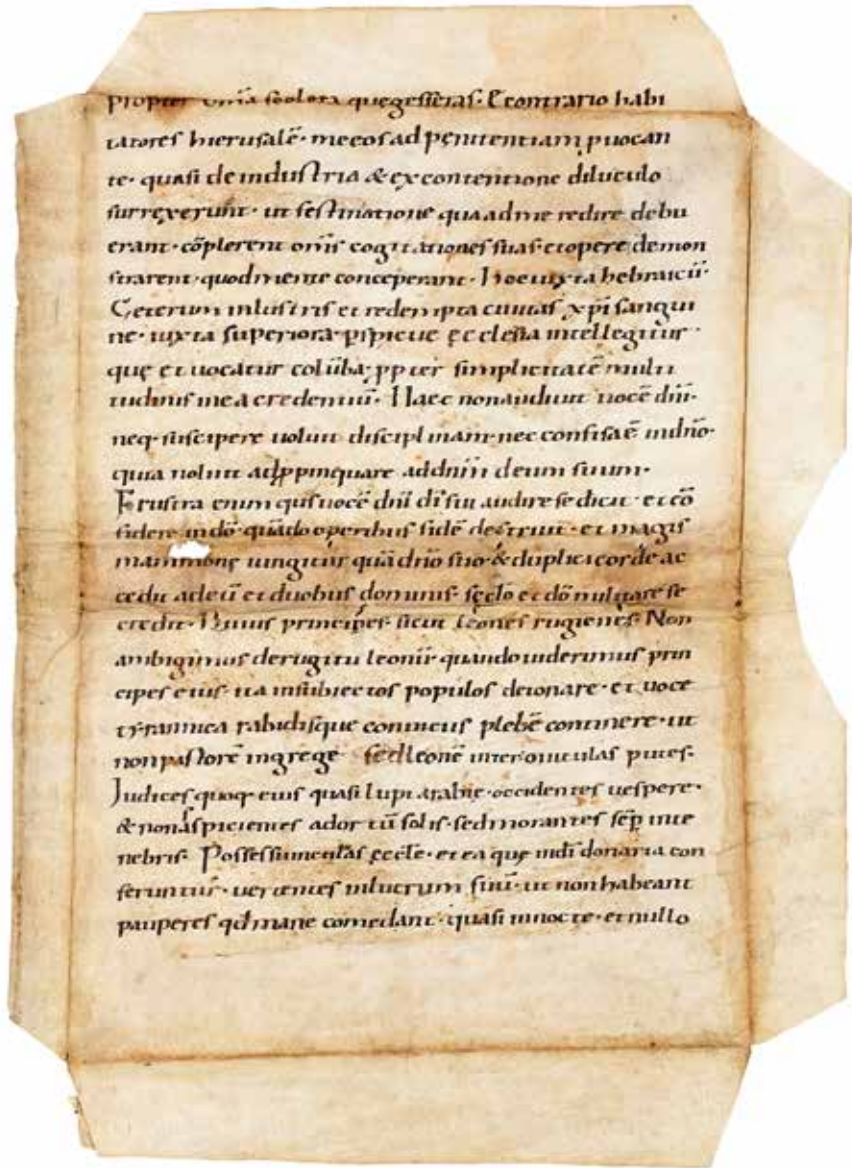 propter om̄ia scelera quę gesseras. Econtrario habi
tatores hierusalē. me eos ad pęnitentiam puocan
te. quasi de industria & ex contentione diluculo
surrexerunt. ut festinatione qua ad me redire debu
erant. cōplerent om̄is cogitationes suas. et opere demon
strarent. quod mente conceperant. Hoc iuxta hebraicū.
Ceterum inlustris et redempta ciuitas xp̄i sangui
ne. iuxta superiora. pspicue ęcclesia intellegitur
quę et uocatur colūba. ppter simplicitatē multi
tudinis in ea credentiū. Haec non audiuit uocē dn̄i.
neq; suscipere uoluit disciplinam. nec confisa ē in dn̄o.
quia noluit adppinquare ad dn̄m deum suum.
Frustra enim quis uocē dn̄i dī sui audire se dicit. et cō
fidere in dō. quādo operibus fidē destruit. et magis
mammonę iungitur quā dn̄o suo. & duplici corde ac
cedit ad eū et duobus dominis. sęclo et dō militare se
credit. Huius principes sicut leones rugientes. Non
ambigimus de rugitu leonis. quando uiderimus prin
cipes eius. ita in subiectos populos detonare. et uoce
tyrannica rabidisque conuiciis plebē continere. ut
non pastorē in grege sed leonē inter ouiculas putes.
Iudices quoq; eius quasi lupi arabię. occidentes uespere.
& non aspicientes ad ortū solis. sed morantes sēp in te
nebris. Possessiunculas ęcclę. et ea quę in dī donaria con
feruntur. uertentes in lucrum suū. ut non habeant
pauperes qd mane comedant. quasi in nocte. et nullo